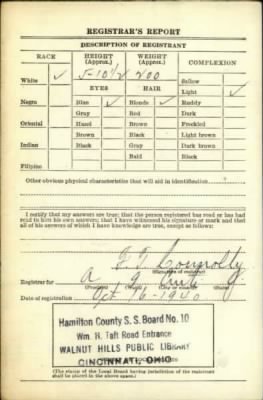 REGISTRAR'S REPORT
DESCRIPTION OF REGISTRANT
RACE HEIGHT (Approx.) WEIGHT (Approx.) COMPLEXION
White ✓ 5-10½ 200 Sallow
EYES HAIR Light ✓
Negro Blue ✓ Blonde ✓ Ruddy
Gray Red Dark
Oriental Hazel Brown Freckled
Brown Black Light brown
Indian Black Gray Dark brown
Bald Black
Filipino
Other obvious physical characteristics that will aid in identification
I notify that my answers are true; that the person registered has read or has had
read to him his own answers; that I have witnessed his signature or mark and that
all of his answers of which I have knowledge are true, except as follows:
Connolly
(Signature of registrar)
Registrar for
(Precinct) (City or county) (State)
Date of registration Oct 16-1940
Hamilton County S. S. Board No. 10
Wm. H. Taft Road Entrance
WALNUT HILLS PUBLIC LIBRARY
CINCINNATI, OHIO
(The stamp of the Local Board having jurisdiction of the registrant
shall be placed in the above space.)